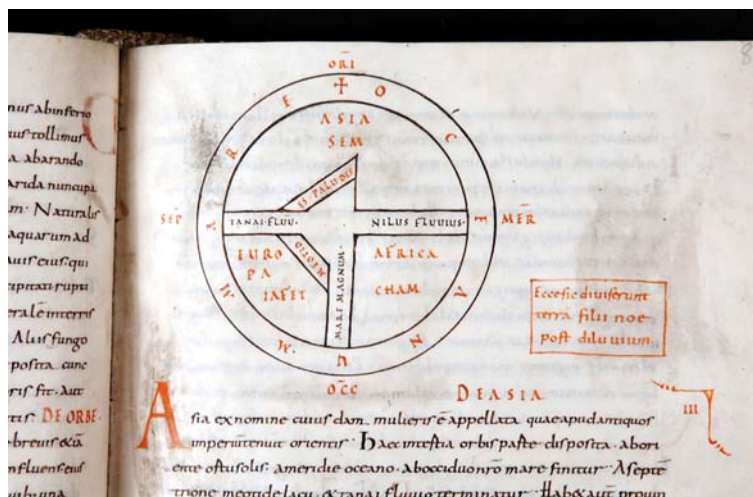 nus abinferio
uus tollimus
a abarando
arida nuncupa
m. Naturalis
aquarum ad
auis eius. qui
cipitati rupti
erale interris
Alius fungo
posita cunc
ris fit. Aut
tis. DE ORBE.
breuis &ia
nfluens eius
ORI
MARE OCEANUM
ASIA
SEM
ES PALUDES
SEP
TANAI FLUU.
NILUS FLUUIUS.
MER
MEOTID
EURO
PA
IAFET
MARE MAGNUM.
AFRICA
CHAM
OCC
Eccesic diuiserunt
terrā filii noe
post diluuium
DE ASIA
III
Asia ex nomine cuius dam. mulieris ē appellata quae apud antiquos
imperiū tenuit orientis. Haec intestia orbis paste disposita. abori
ente ortu solis. ameridie oceano. aboccid uo nrō mare finitur. A septē
trione meotide lacu. & tanai fluuio terminatur. Hab& aut prouin